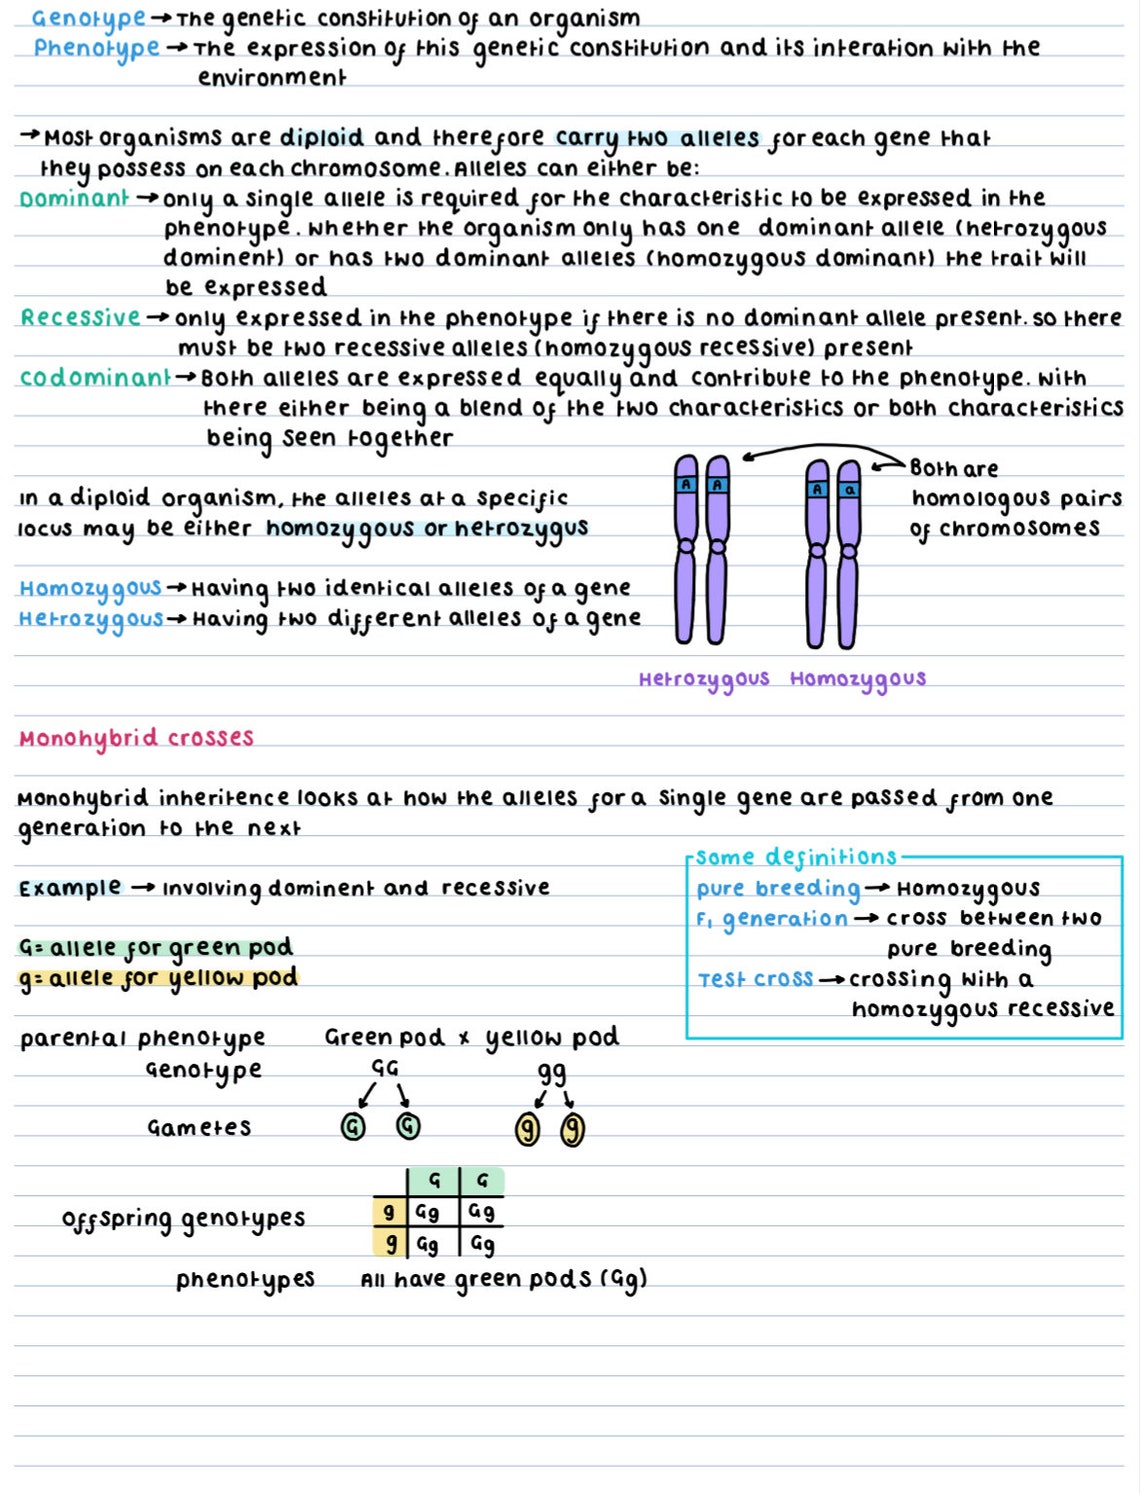 Genotype → The genetic constitution of an organism
Phenotype → The expression of this genetic constitution and its interation with the
environment
→ Most organisms are diploid and therefore carry two alleles for each gene that
they possess on each chromosome. Alleles can either be:
Dominant → only a single allele is required for the characteristic to be expressed in the
phenotype. Whether the organism only has one dominant allele (hetrozygous
dominent) or has two dominant alleles (homozygous dominant) the trait will
be expressed
Recessive → only expressed in the phenotype if there is no dominant allele present. so there
must be two recessive alleles (homozygous recessive) present
codominant → Both alleles are expressed equally and contribute to the phenotype. with
there either being a blend of the two characteristics or both characteristics
being seen together
In a diploid organism, the alleles at a specific
locus may be either homozygous or hetrozygus
Homozygous → Having two identical alleles of a gene
Hetrozygous → Having two different alleles of a gene
A A A a
Both are
homologous pairs
of chromosomes
Hetrozygous Homozygous
Monohybrid crosses
Monohybrid inheritence looks at how the alleles for a single gene are passed from one
generation to the next
Example → Involving dominent and recessive
G= allele for green pod
g= allele for yellow pod
some definitions
pure breeding → Homozygous
F₁ generation → cross between two
pure breeding
Test cross → crossing with a
homozygous recessive
parental phenotype Green pod x yellow pod
Genotype GG gg
Gametes G G g g
G G
offspring genotypes g Gg Gg
g Gg Gg
phenotypes All have green pods (Gg)